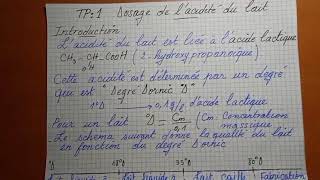 TP:1 Dosage de l'acidité du lait
Introduction
L'acidité du lait est liée à l'acide lactique
CH3-CH-COOH (2-hydroxypropanoïque)
OH
Cette acidité est déterminée par un degré
qui est "Degré Dornic °D"
1°D → 0,1g/l d'acide lactique
Pour un lait °D = Cm/0,1 (Cm: Concentration
massique)
- Le schema suivant donne la qualité du lait
en fonction du degré Dornic
18°D 55°D 80°D
lait liquide lait caillé Fabrication